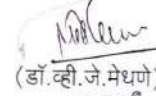 (डॉ.व्ही.जे.मेथणे)